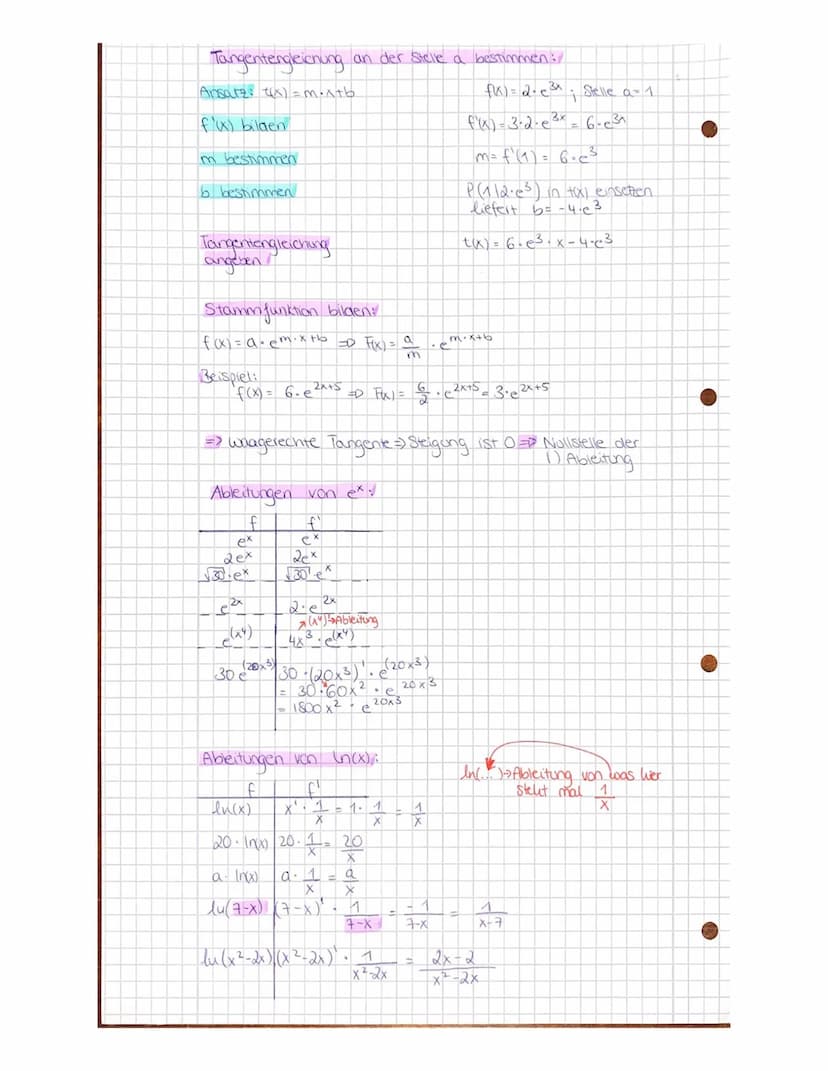 Tangentengleichung an der Stelle a bestimmen:
Ansatz: t(x) = m·x+b
f(x) = 2·e^3x ; Stelle a = 1
f'(x) bilden
f'(x) = 3·2·e^3x = 6·e^3x
m bestimmen
m = f'(1) = 6·e^3
b bestimmen
P(1|2·e^3) in t(x) einsetzen
liefert b = -4·e^3
Tangentengleichung
angeben
t(x) = 6·e^3·x - 4·e^3
Stammfunktion bilden:
f(x) = a·e^m·x+b => F(x) = a/m · e^m·x+b
Beispiel:
f(x) = 6·e^2x+5 => F(x) = 6/2 · e^2x+5 = 3·e^2x+5
=> waagerechte Tangente => Steigung ist 0 => Nullstelle der
1) Ableitung
Ableitungen von e^x:
f f'
e^x e^x
2e^x 2e^x
√30·e^x √30·e^x
e^2x 2·e^2x
(x^4)' → Ableitung
e^(x^4) 4x^3·e^(x^4)
30e^(20x^3) 30·(20x^3)'·e^(20x^3)
= 30·60x^2·e^20x^3
= 1800x^2·e^20x^3
Ableitungen von ln(x):
ln(...) → Ableitung von was hier
steht mal 1/x
f f'
ln(x) x'·1/x = 1·1/x = 1/x
20·ln(x) 20·1/x = 20/x
a·ln(x) a·1/x = a/x
ln(7-x) (7-x)'·1/7-x = -1/7-x = 1/x-7
ln(x^2-2x) (x^2-2x)'·1/x^2-2x = 2x-2/x^2-2x